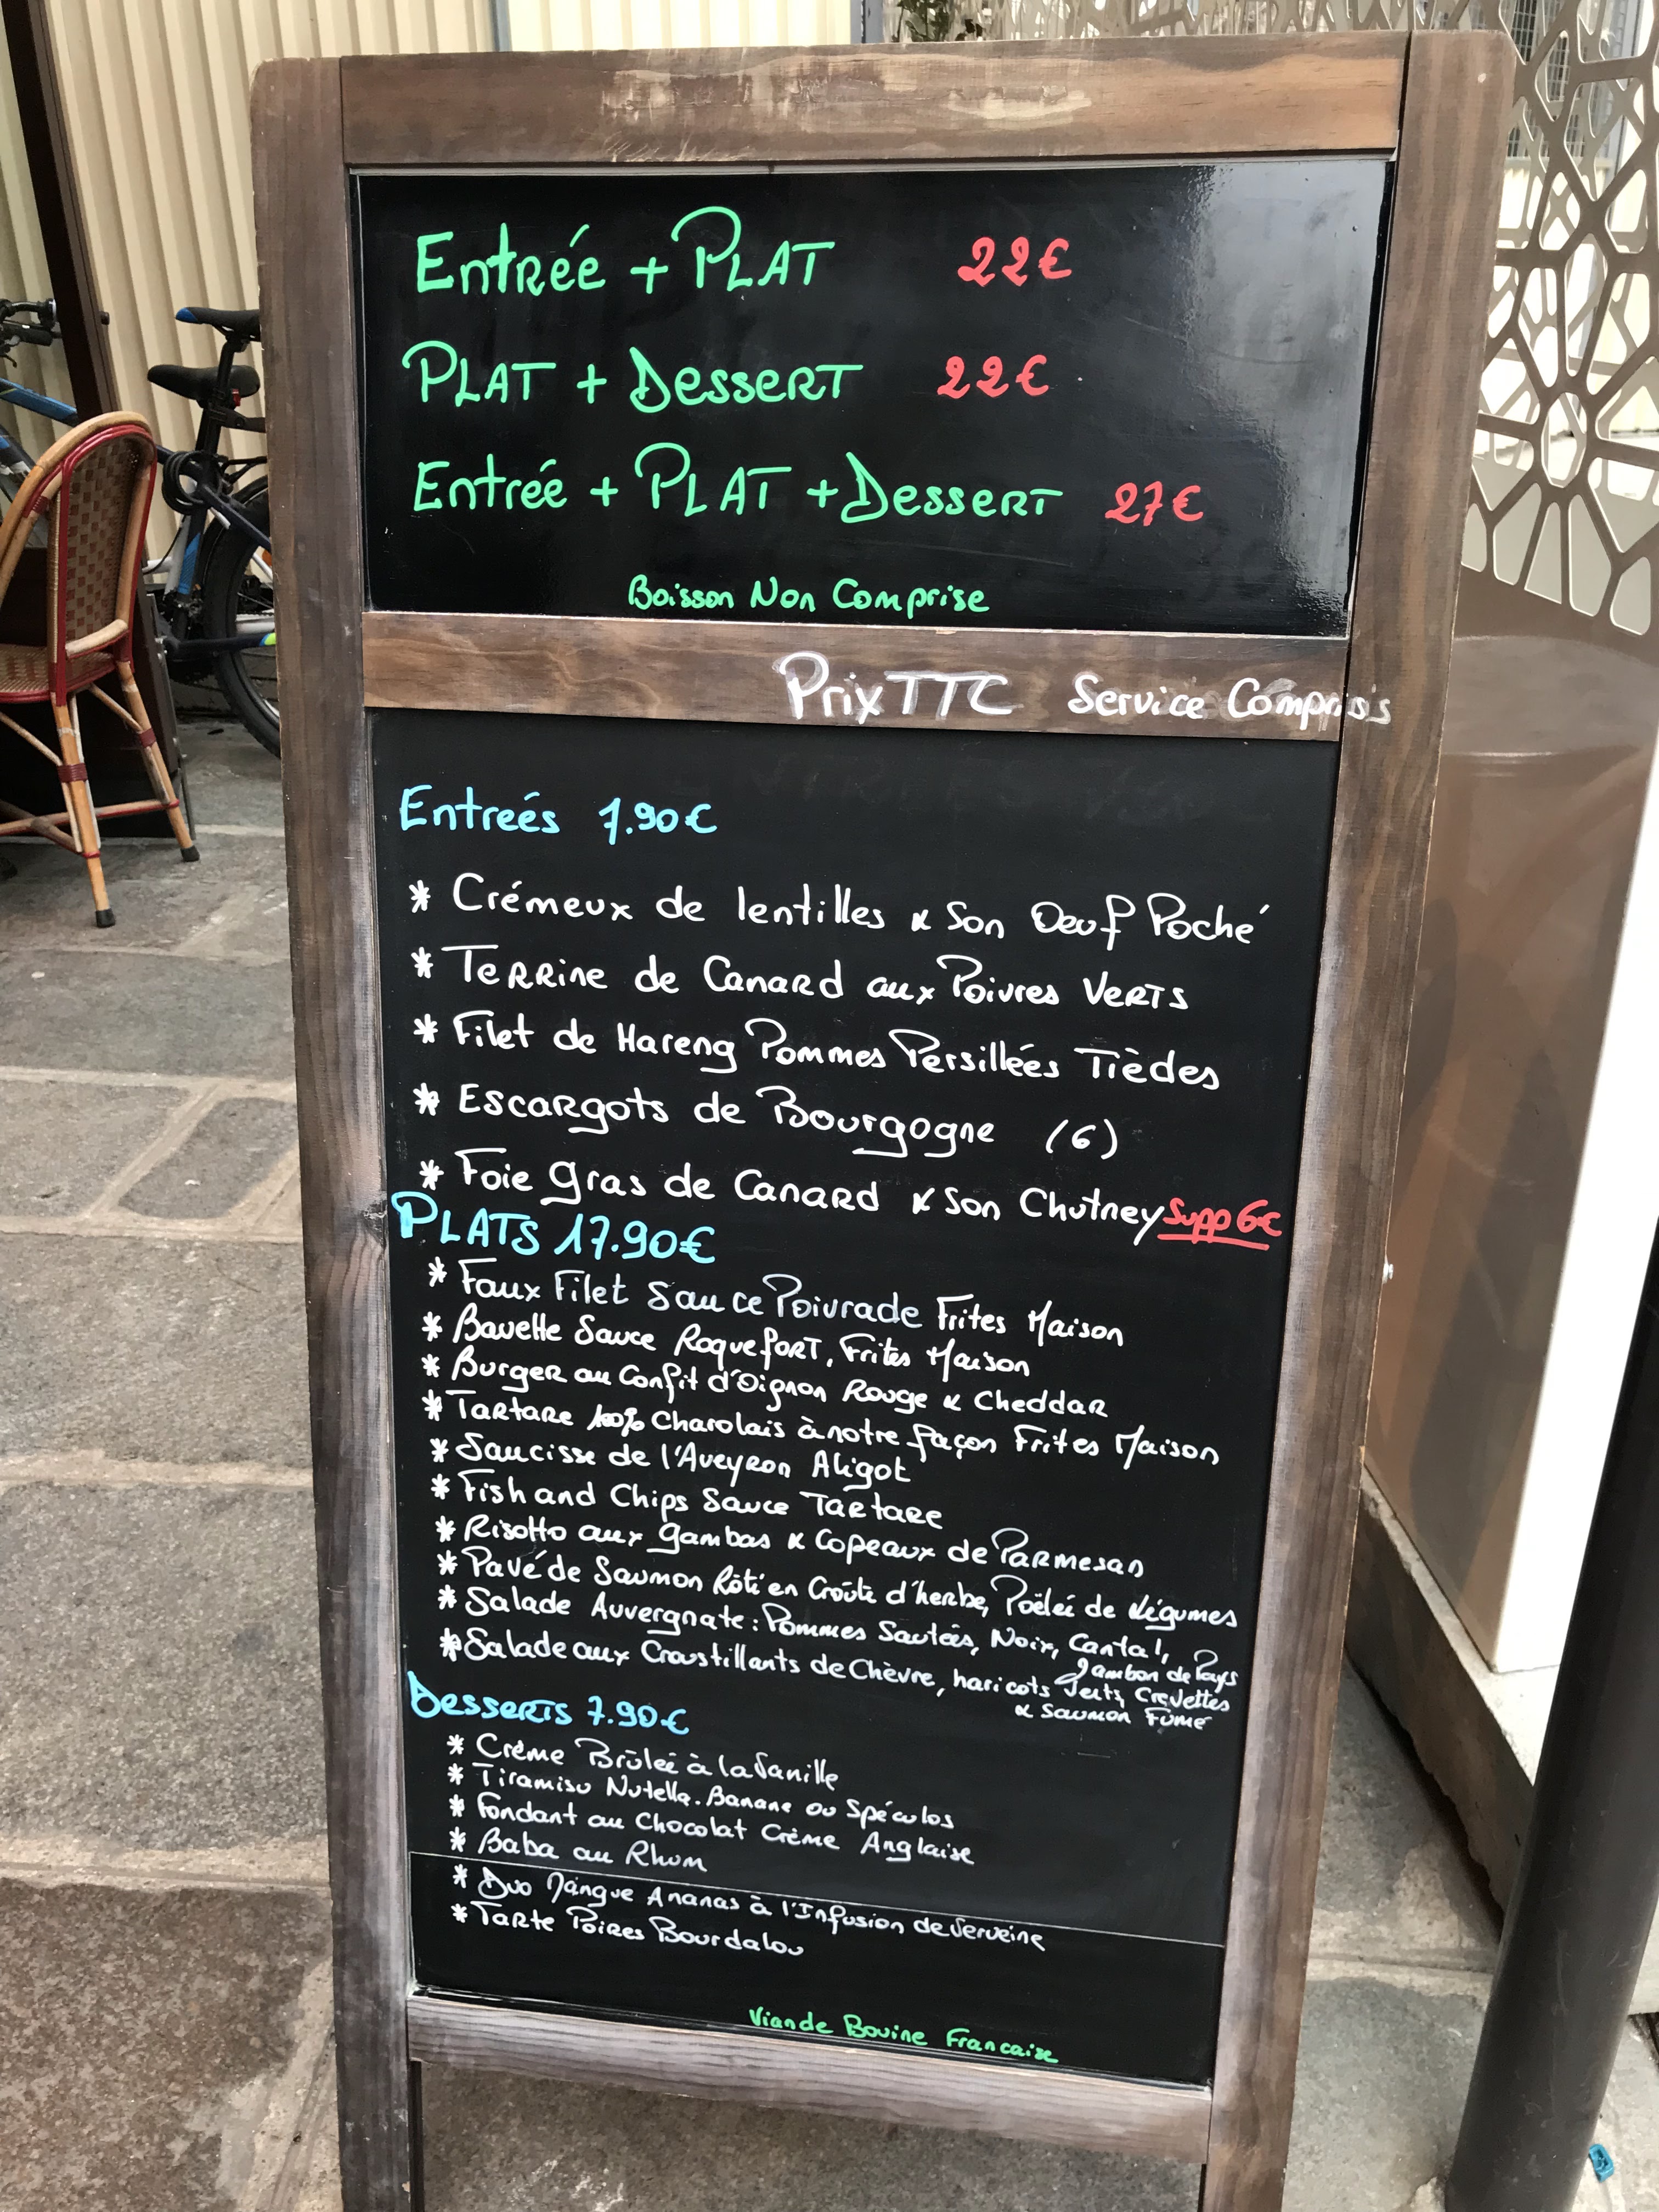 Entrée + PLAT 22€
PLAT + Dessert 22€
Entrée + PLAT + Dessert 27€
Boisson Non Comprise
Prix TTC Service Compris
Entreés 7.90€
* Crémeux de lentilles & Son Oeuf Poché
* Terrine de Canard aux Poivres Verts
* Filet de Hareng Pommes Persillées Tièdes
* Escargots de Bourgogne (6)
* Foie gras de Canard & Son Chutney Supp 6€
PLATS 17.90€
* Faux Filet Sauce Poivrade Frites Maison
* Bavette Sauce Roquefort, Frites Maison
* Burger au Confit d'Oignon Rouge & Cheddar
* Tartare 100% Charolais à notre façon Frites Maison
* Saucisse de l'Aveyron Aligot
* Fish and Chips Sauce Tartare
* Risotto aux gambas & Copeaux de Parmesan
* Pavé de Saumon Rôti en Croûte d'herbe, Poêleé de légumes
* Salade Auvergnate : Pommes Sauteés, Noix, Cantal,
Jambon de Pays
* Salade aux Croustillants de Chèvre, haricots Verts, Crevettes
& Saumon Fumé
Desserts 7.90€
* Crème Brûleé à la Vanille
* Tiramisu Nutella. Banane ou Spéculos
* Fondant au Chocolat Crème Anglaise
* Baba au Rhum
* Duo Mangue Ananas à l'Infusion de Verveine
* Tarte Poires Bourdalou
Viande Bovine Francaise